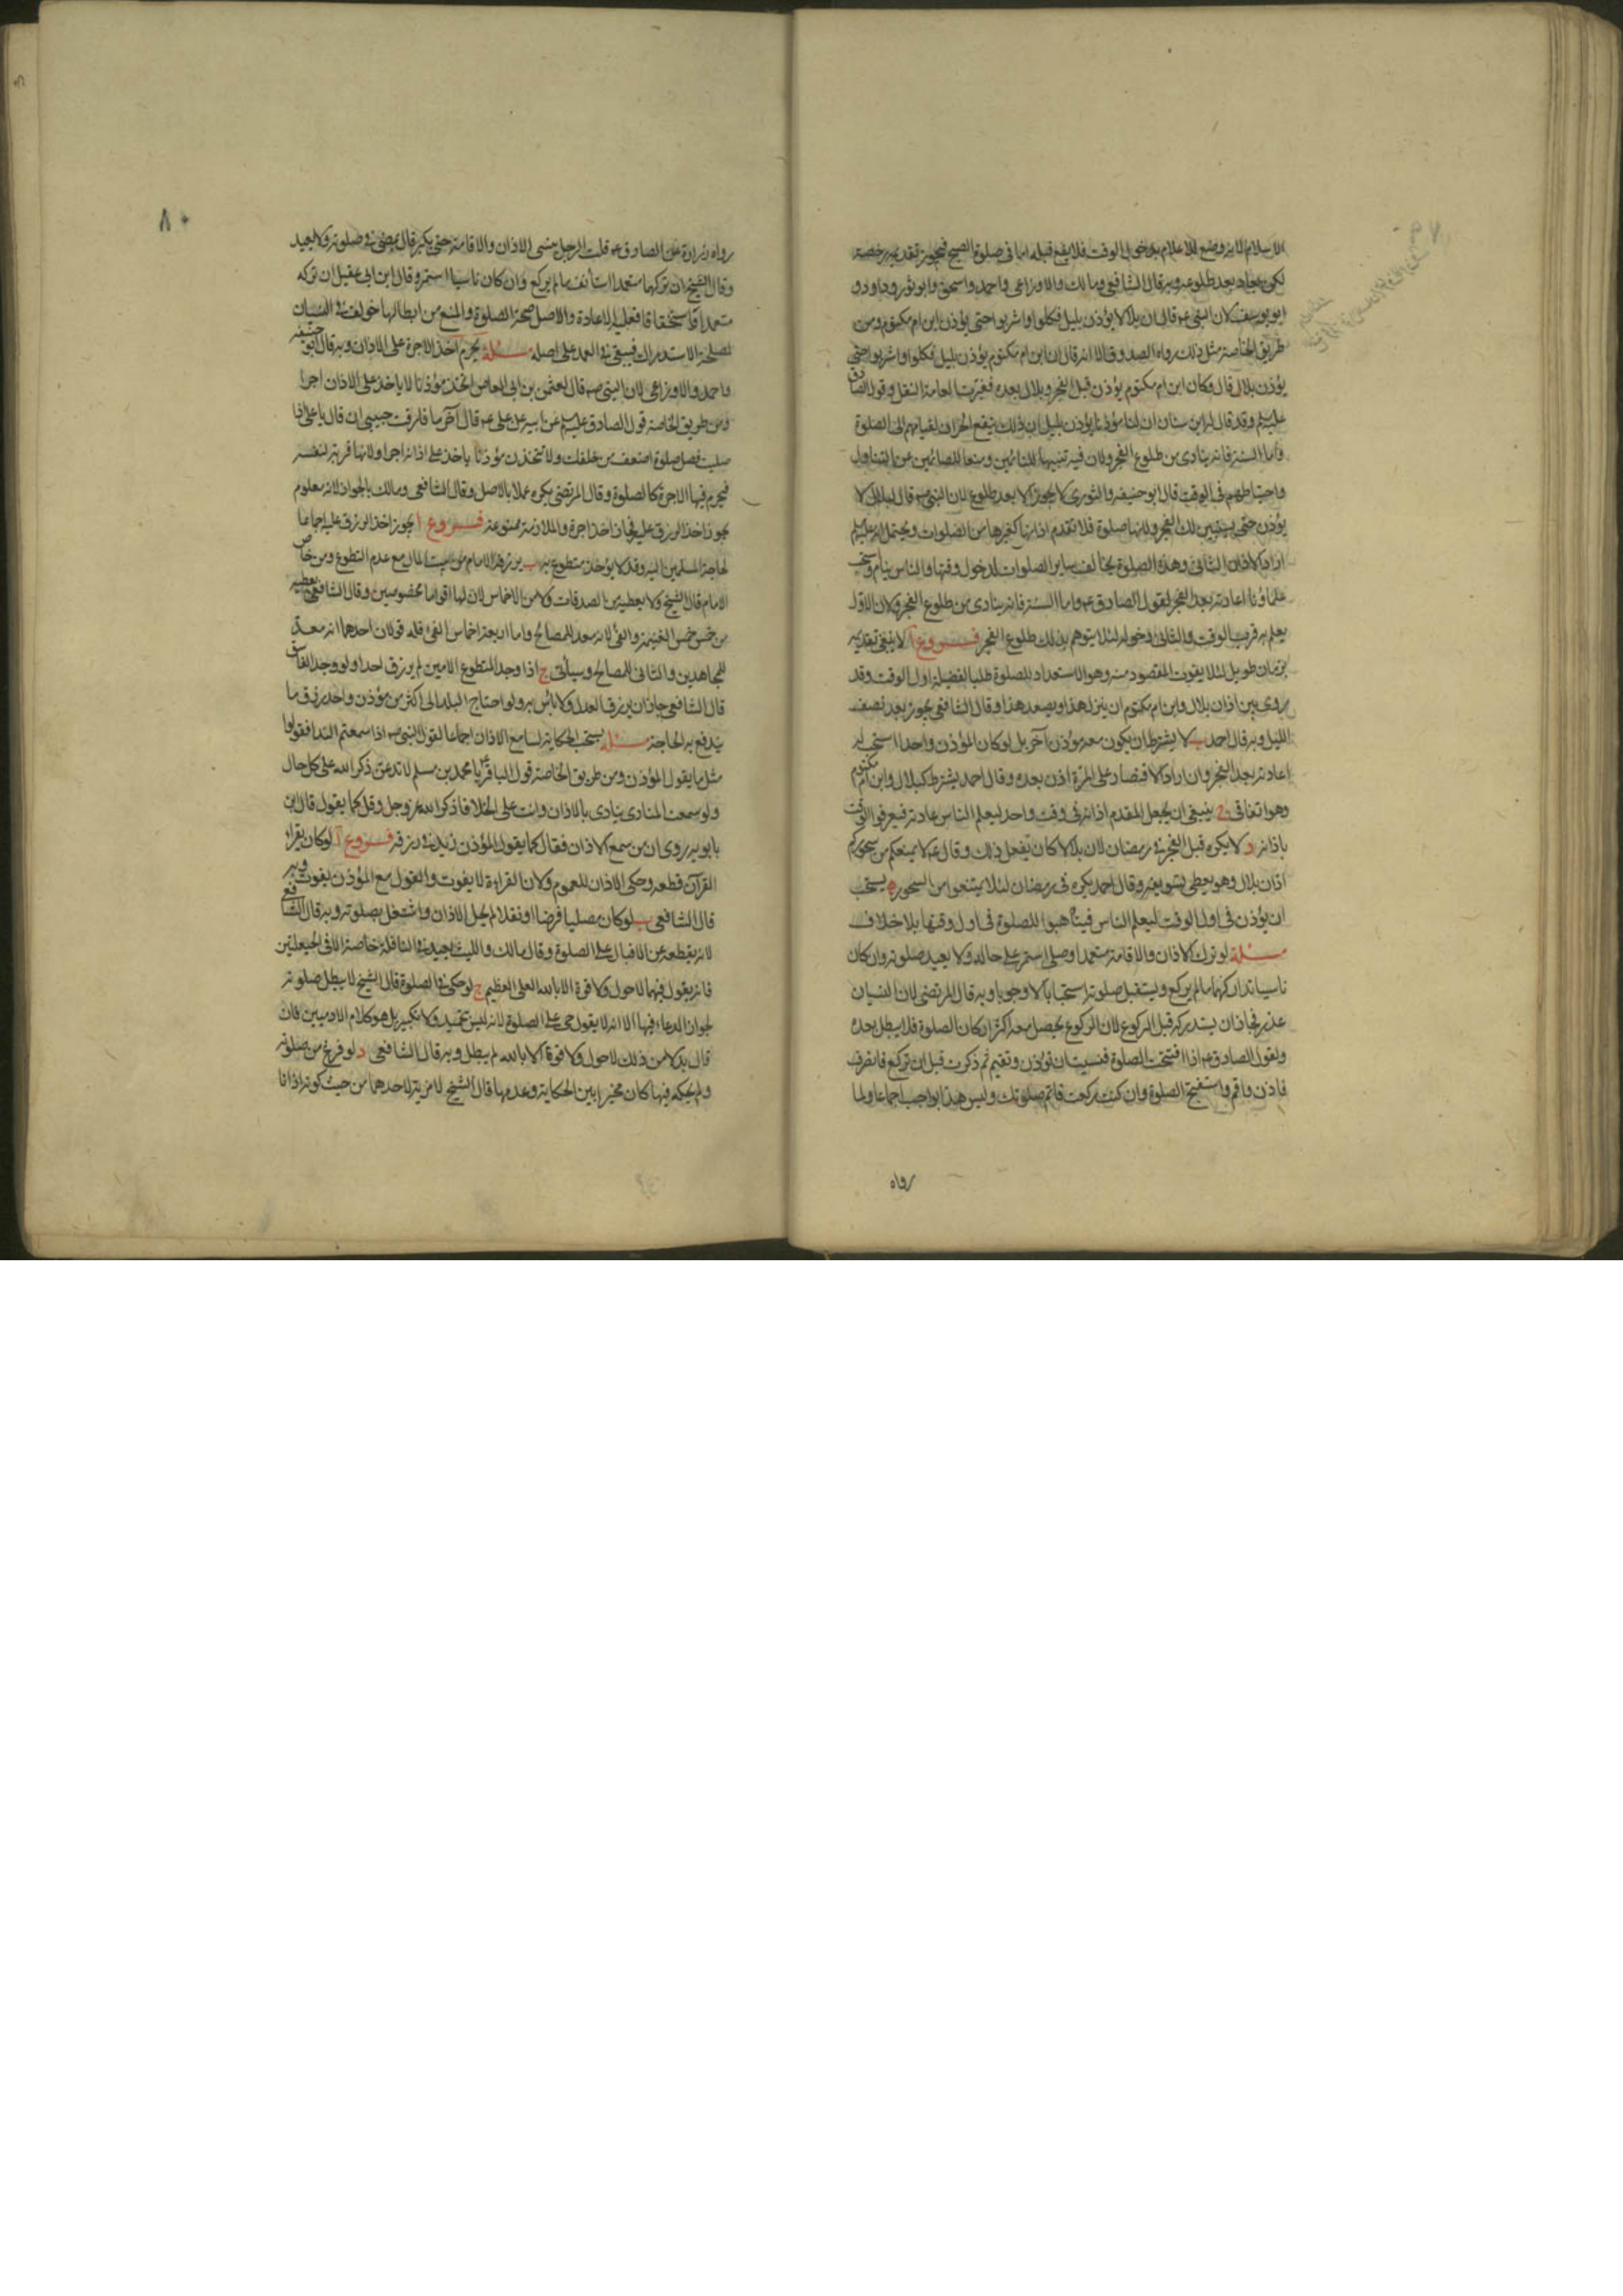 الاسلام لانه وضع للاعلام بدخول الوقت فلا يقع قبله اما في صلوة الصبح فيجوز تقديمه رخصة
لكن يعاد بعد طلوعه وبه قال الشافعي ومالك والاوزاعي واحمد واسحق وابو ثور وداود و
ابو يوسف لان النبي ص قال ان بلالا يؤذن بليل فكلوا واشربوا حتى يؤذن ابن ام مكتوم ومن
طريق الخاصة مثل ذلك رواه الصدوق الا انه قال ان ابن ام مكتوم يؤذن بليل فكلوا واشربوا حتى
يؤذن بلال قال وكان ابن ام مكتوم يؤذن قبل الفجر وبلال بعده فغيرت العامة النقل وقول الصادق
عليه السلم وقد قال له ابن سنان ان لنا مؤذنا يؤذن بليل ان ذلك ينفع الجيران لقيامهم الى الصلوة
واما السنة فانه ينادى من طلوع الفجر ولان فيه تنبيها للنائمين ومنعا للصائمين عن التناول
واحتياطهم في الوقت قال ابو حنيفة والثوري لا يجوز الا بعد طلوع لان النبي ص قال لبلال لا
يؤذن حتى يستبين لك الفجر ولانها صلوة فلا تقدم اذانها كغيرها من الصلوات ويحتمل انه عليه السلم
اراد الاذان الثاني وهذه الصلوة تخالف ساير الصلوات لدخول وقتها والناس نيام واستحب
علماونا اعادته بعد الفجر لقول الصادق ع واما السنة فانه ينادى من طلوع الفجر ولان الاول
يعلم به قرب الوقت والثاني دخوله لئلا يتوهم بذلك طلوع الفجر فروع ا لا ينبغي تقديمه
بزمان طويل لئلا يفوت المقصود منه وهو الاستعداد للصلوة طلبا لفضيلة اول الوقت وقد
روى بين اذان بلال وابن ام مكتوم ان ينزل هذا ويصعد هذا وقال الشافعي يجوز بعد نصف
الليل وبه قال احمد ب لا يشترط ان يكون معه مؤذن آخر بل لو كان المؤذن واحدا استحب له
اعادته بعد الفجر وان اراد الاقتصار على المرة اذن بعده وقال احمد يشترط كبلال وابن ام مكتوم
وهو اتفاقي ج ينبغي ان يجعل المقدم اذانه في وقت واحد ليعلم الناس عادته فيعرفوا الوقت
باذانه د لا يكره قبل الفجر في رمضان لان بلالا كان يفعل ذلك وقال ع لا يمنعكم من سحوركم
اذان بلال وهو يعطي تسويغه وقال احمد يكره في رمضان لئلا يمتنعوا من السحور ه يستحب
ان يؤذن في اول الوقت ليعلم الناس فيتأهبوا للصلوة في اول وقتها بلا خلاف
مسئلة لو ترك الاذان والاقامة متعمدا وصلى استمر على حاله ولا يعيد صلوته وان كان
ناسيا تداركهما ما لم يركع ويستقبل صلوته استحبابا لا وجوبا وبه قال المرتضى لان النسيان
عذر فجاز ان يستدركه قبل الركوع لان الركوع يحصل معه اكثر اركان الصلوة فلا يبطل بعده
ولقول الصادق ع اذا افتتحت الصلوة فنسيت ان تؤذن وتقيم ثم ذكرت قبل ان تركع فانصرف
فاذن واقم واستفتح الصلوة وان كنت ركعت فاتم صلوتك وليس هذا بواجب اجماعا ولما
رواه
٨٠
رواه زرارة عن الصادق ع قلت الرجل ينسى الاذان والاقامة حتى يكبر قال يمضي في صلوته ولا يعيد
وقال الشيخ ان تركهما متعمدا استأنف ما لم يركع وان كان ناسيا استمر وقال ابن ابي عقيل ان تركه
متعمدا واستخفافا فعليه الاعادة والاصل صحة الصلوة والمنع من ابطالها خولف في النسيان
لمصلحة الاستدراك فيبقى في العمد على اصله مسئلة يحرم اخذ الاجرة على الاذان وبه قال ابو حنيفة
واحمد والاوزاعي لان النبي ص قال لعثمن بن ابي العاص اتخذ مؤذنا لا ياخذ على الاذان اجرا
ومن طريق الخاصة قول الصادق عليه السلم عن ابيه عن علي ع قال آخر ما فارقت حبيبي ان قال يا علي اذا
صليت فصل صلوة اضعف من خلفك ولا تتخذن مؤذنا ياخذ على اذانه اجرا ولانها قربة لنفسه
فيحرم فيها الاجرة كالصلوة وقال المرتضى يكره عملا بالاصل وقال الشافعي ومالك بالجواز لانه معلوم
يجوز اخذ الرزق عليه فجاز اخذ اجرة والملازمة ممنوعة فروع ا يجوز اخذ الرزق عليه اجماعا
لحاجة المسلمين اليه وقد لا يوجد متطوع به ب يرزقه الامام من بيت المال مع عدم التطوع ومن خاص
الامام قال الشيخ ولا يعطيه من الصدقات ولا من الاخماس لان لها اقواما مخصوصين وقال الشافعي يعطيه
من خمس خمس الغنيمة والفئ لانه معد للمصالح واما اربعة اخماس الفئ فله قولان احدهما انه معد
للمجاهدين والثاني للمصالح وسيأتي ج اذا وجد المتطوع الامين لم يرزق احدا ولو وجد الفاسق
قال الشافعي جاز ان يرزق العدل ولا بأس به ولو احتاج البلد الى اكثر من مؤذن واحد رزق ما
يندفع به الحاجة مسئلة يستحب الحكاية لسامع الاذان اجماعا لقول النبي ص اذا سمعتم النداء فقولوا
مثل ما يقول المؤذن ومن طريق الخاصة قول الباقر ع يا محمد بن مسلم لا تدعن ذكر الله على كل حال
ولو سمعت المنادى ينادى بالاذان وانت على الخلا فاذكر الله عز وجل وقل كما يقول قال ابن
بابويه روى ان من سمع الاذان فقال كما يقول المؤذن زيد في رزقه فروع ا لو كان يقرأ
القرآن قطعه وحكى الاذان للعموم ولان القراءة لا يفوت والقول مع المؤذن يفوت وبه
قال الشافعي ب لو كان مصليا فرضا او نفلا لم يحك الاذان واشتغل بصلوته وبه قال الشافعي
لانه يقطعه عن الاقبال على الصلوة وقال مالك والليث يعيده في النافلة خاصة الا في الحيعلتين
فانه يقول فيهما لا حول ولا قوة الا بالله العلي العظيم ج لو حكى في الصلوة قال الشيخ لا يبطل صلوته
لجواز الدعاء فيها الا انه لا يقول حي على الصلوة لانه ليس تحميد ولا تكبير بل هو كلام الادميين فان
قال بدلا من ذلك لا حول ولا قوة الا بالله لم يبطل وبه قال الشافعي د لو فرغ من صلوته
ولم يحكه فيها كان مخيرا بين الحكاية وعدمها قال الشيخ لا مزية لاحدهما من حيث كونه اذانا